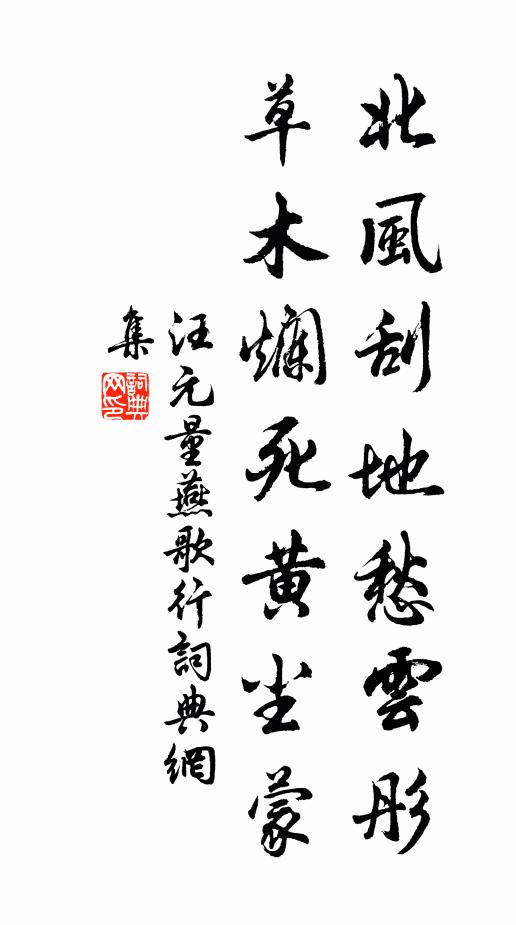 北風刮地愁雲彤
草木爛死黄尘蒙
汪元量燕歌行詞典網
集
詞典网印